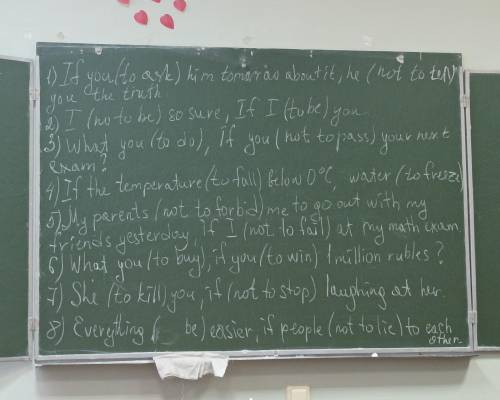 1) If you (to ask) him tomorow about it, he (not to tell)
you the truth
2) I (not to be) so sure, If I (to be) you.
3) What you (to do), If you (not to pass) your next
exam?
4) If the temperature (to fall) below 0°C, water (to freeze)
5) My parents (not to forbid) me to go out with my
friends yesterday, if I (not to fail) at my math exam.
6) What you (to buy), if you (to win) 1 million rubles?
7) She (to kill) you, if (not to stop) laughing at her.
8) Everything ( be) easier, if people (not to lie) to each
other